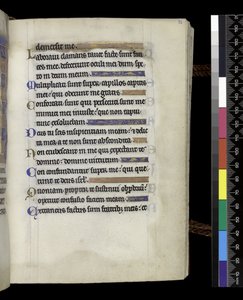 demersit me.
Laboraui clamans rauce facte sunt fau
ces mee: defecerunt oculi mei dum spe
ro in deum meum.
Multiplicati sunt super capillos capitis
mei: qui oderunt me gratis.
Confortati sunt qui persecuti sunt me
inimici mei iniuste: que non rapui
tunc exsoluebam.
Deus tu scis insipientiam meam: et delic
ta mea a te non sunt abscondita.
Non erubescant in me qui expectant te
domine: domine uirtutum.
Non confundantur super me: qui que
runt te deus isrl.
Quoniam propter te sustinui obprobrium:
operuit confusio faciem meam.
Extraneus factus sum fratribus meis: et